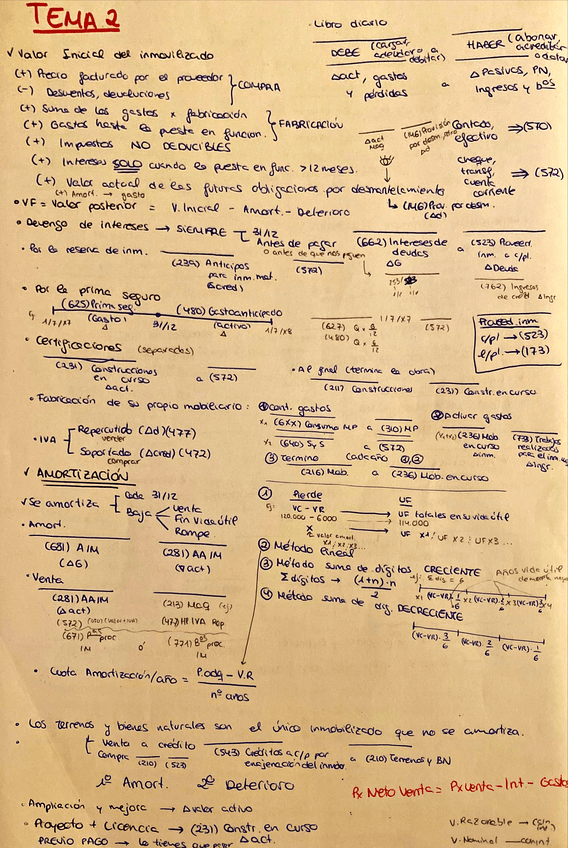 TEMA 2
· Libro diario
DEBE (cargar, adeudar o debitar) HABER (abonar, acreditar o datar)
Δact, gastos y pérdidas a Δ Pasivos, PN, Ingresos y bºs
✓ Valor Inicial del inmovilizado
(+) Precio facturado por el proveedor
(-) Descuentos, devoluciones } COMPRA
(+) Suma de los gastos x fabricación
(+) Gastos hasta la puesta en funcion. } FABRICACIÓN
(+) Impuestos NO DEDUCIBLES
(+) Intereses SOLO cuando la puesta en func. > 12 meses.
(+) Valor actual de las futuras obligaciones por desmantelamiento
Contado, efectivo ⇒ (570)
cheque, transf, cuenta corriente ⇒ (572)
↳ (143) Prov. por desm. (Δd)
(+) Amort. → gasto
• VF = Valor posterior = V. Inicial - Amort. - Deterioro
• Devengo de intereses → SIEMPRE 31/12
Antes de pagar
o antes de que nos paguen
(662) Intereses de deudas a (523) Proveed. inm. a c/p.
ΔG ΔDeuda
(762) Ingresos de crédit Δingr
· Por la reserva de inm.
(239) Anticipos para inm. mat. (Δcred) (572)
• Por la prima seguro
(625) Prima seg. (480) Gasto anticipado
1/7/X7 (Gasto) 31/12 (activo) 1/7/X8
1/7/X7
(572)
(480)
Proveed. inm
c/pl → (523)
l/pl → (173)
• Certificaciones (separadas)
(231) Construcciones en curso a (572)
Δact.
• Al final (termina la obra)
(211) Construcciones (231) Constr. en curso
• Fabricación de su propio mobiliario:
① Cont. gastos
x₁ (6XX) Consumo MP a (310) MP
x₂ (640) SyS a (572)
② Activar gastos
(x₁+x₂) (236) Mob en curso Δinm (733) Trabajos realizados para el inm. Δingr.
③ Termino
(216) Mob. a (236) Mob. en curso
• IVA
Repercutido (Δd) (477)
vender
Soportado (Δcred) (472)
comprar
✓ AMORTIZACIÓN
✓ Se amortiza
Cada 31/12
Baja
Venta
Fin vida útil
Rompe
• Amort.
(681) AIM (281) AAIM
(ΔG) (∇act)
• Venta
(281) AAIM (213) Maq (ej)
(Δact)
(572) (477) HP IVA Rep
(671) Pᵉˢ proc IM ó (771) Bᵒˢ proc IM
① Pierde UF
VC - VR → UF totales en su vida útil
120.000 - 6000 → 114.000
X → UF x1 / UF x2 / UF x3...
② Método lineal
③ Método suma de dígitos CRECIENTE
Σ dígitos → (1+n)·n / 2
④ Método suma de díg. DECRECIENTE
(VC-VR)·3/6 (VC-VR)·2/6 (VC-VR)·1/6
• Cuota Amortización/año = P.adq - V.R / nº años
• Los terrenos y bienes naturales son el único inmobilizado que no se amortiza.
• Venta a crédito (543) Créditos a c/p por enajenación del inmov. a (210) Terrenos y BN
Compra (210) (523)
1º Amort. 2º Deterioro
Px Neto Venta = Px venta - Int - Gasto
· Ampliación y mejora → Δvalor activo
• Proyecto + Licencia → (231) Constr. en curso
Δact.
PREVIO PAGO → lo tienes que pagar
V. Razonable →
V. Nominal →